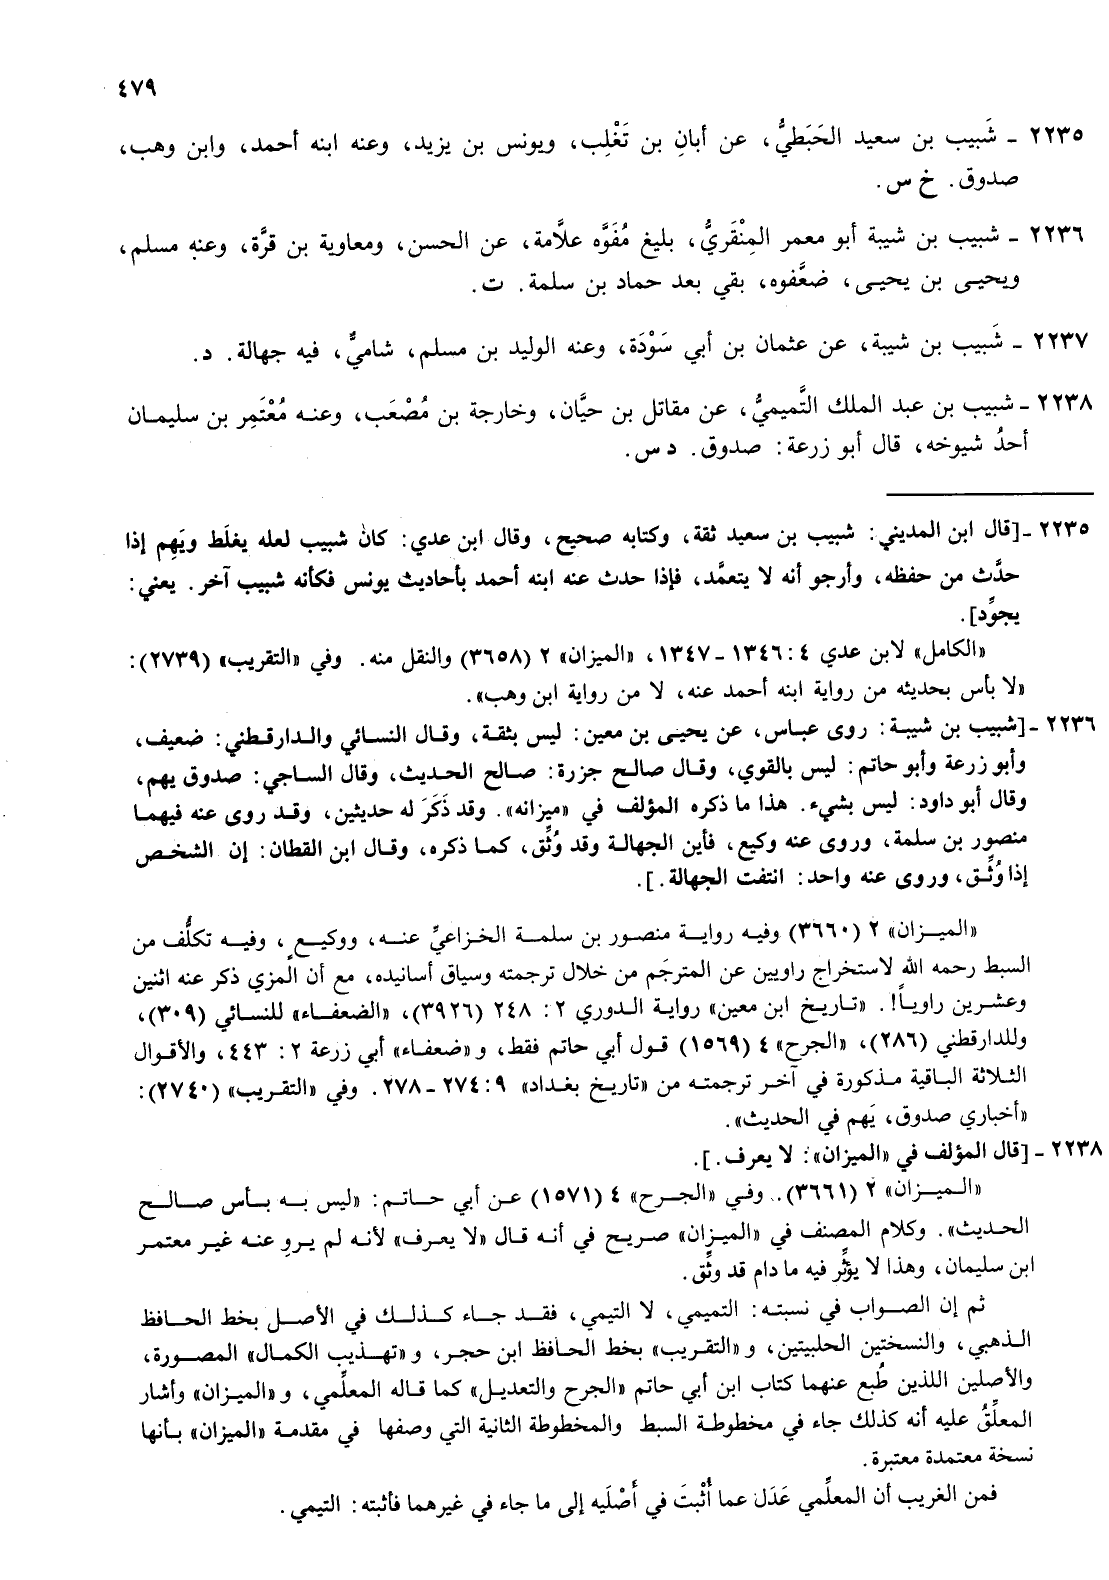 ٤٧٩
٢٢٣٥ ـ شَبيب بن سعيد الحَبَطيُّ، عن أبانِ بن تَغْلِب، ويونس بن يزيد، وعنه ابنه أحمد، وابن وهب،
صدوق. خ س.
٢٢٣٦ ـ شبيب بن شيبة أبو معمر المِنْقَريُّ، بليغ مُفَوَّه علاَّمة، عن الحسن، ومعاوية بن قرَّة، وعنه مسلم،
ويحيى بن يحيى، ضعَّفوه، بقي بعد حماد بن سلمة. ت.
٢٢٣٧ ـ شَبيب بن شيبة، عن عثمان بن أبي سَوْدَة، وعنه الوليد بن مسلم، شاميٌّ، فيه جهالة. د.
٢٢٣٨ ـ شبيب بن عبد الملك التَّميميُّ، عن مقاتل بن حيَّان، وخارجة بن مُصْعَب، وعنه مُعْتَمِر بن سليمان
أحدُ شيوخه، قال أبو زرعة: صدوق. د س.
٢٢٣٥ ـ [قال ابن المديني: شبيب بن سعيد ثقة، وكتابه صحيح، وقال ابن عدي: كان شبيب لعله يغلَط ويَهِم إذا
حدَّث من حفظه، وأرجو أنه لا يتعمَّد، فإذا حدث عنه ابنه أحمد بأحاديث يونس فكأنه شبيب آخر. يعني:
يجوِّد].
«الكامل» لابن عدي ٤: ١٣٤٦ ـ ١٣٤٧، «الميزان» ٢ (٣٦٥٨) والنقل منه. وفي «التقريب» (٢٧٣٩):
«لا بأس بحديثه من رواية ابنه أحمد عنه، لا من رواية ابن وهب».
٢٢٣٦ ـ [شبيب بن شيبة: روى عباس، عن يحيى بن معين: ليس بثقة، وقال النسائي والدارقطني: ضعيف،
وأبو زرعة وأبو حاتم: ليس بالقوي، وقال صالح جزرة: صالح الحديث، وقال الساجي: صدوق يهم،
وقال أبو داود: ليس بشيء. هذا ما ذكره المؤلف في «ميزانه». وقد ذَكَرَ له حديثين، وقد روى عنه فيهما
منصور بن سلمة، وروى عنه وكيع، فأين الجهالة وقد وُثِّق، كما ذكره، وقال ابن القطان: إن الشخص
إذا وُثِّق، وروى عنه واحد: انتفت الجهالة.].
«الميزان» ٢ (٣٦٦٠) وفيه رواية منصور بن سلمة الخزاعيِّ عنه، ووكيعٍ، وفيه تكلُّف من
السبط رحمه الله لاستخراج راويين عن المترجَم من خلال ترجمته وسياق أسانيده، مع أن المزي ذكر عنه اثنين
وعشرين راوياً!. «تاريخ ابن معين» رواية الدوري ٢: ٢٤٨ (٣٩٢٦)، «الضعفاء» للنسائي (٣٠٩)،
وللدارقطني (٢٨٦)، «الجرح» ٤ (١٥٦٩) قول أبي حاتم فقط، و«ضعفاء» أبي زرعة ٢: ٤٤٣، والأقوال
الثلاثة الباقية مذكورة في آخر ترجمته من «تاريخ بغداد» ٩: ٢٧٤ ـ ٢٧٨. وفي «التقريب» (٢٧٤٠):
«أخباري صدوق، يَهم في الحديث».
٢٢٣٨ ـ [قال المؤلف في «الميزان»: لا يعرف.].
«الميزان» ٢ (٣٦٦١). وفي «الجرح» ٤ (١٥٧١) عن أبي حاتم: «ليس به بأس صالح
الحديث». وكلام المصنف في «الميزان» صريح في أنه قال «لا يعرف» لأنه لم يروِ عنه غير معتمر
ابن سليمان، وهذا لا يؤثِّر فيه ما دام قد وثِّق.
ثم إن الصواب في نسبته: التميمي، لا التيمي، فقد جاء كذلك في الأصل بخط الحافظ
الذهبي، والنسختين الحلبيتين، و«التقريب» بخط الحافظ ابن حجر، و«تهذيب الكمال» المصورة،
والأصلين اللذين طُبع عنهما كتاب ابن أبي حاتم «الجرح والتعديل» كما قاله المعلِّمي، و«الميزان» وأشار
المعلِّقُ عليه أنه كذلك جاء في مخطوطة السبط والمخطوطة الثانية التي وصفها في مقدمة «الميزان» بأنها
نسخة معتمدة معتبرة.
فمن الغريب أن المعلِّمي عَدَل عما أُثْبتَ في أَصْلَيه إلى ما جاء في غيرهما فأثبته: التيمي.